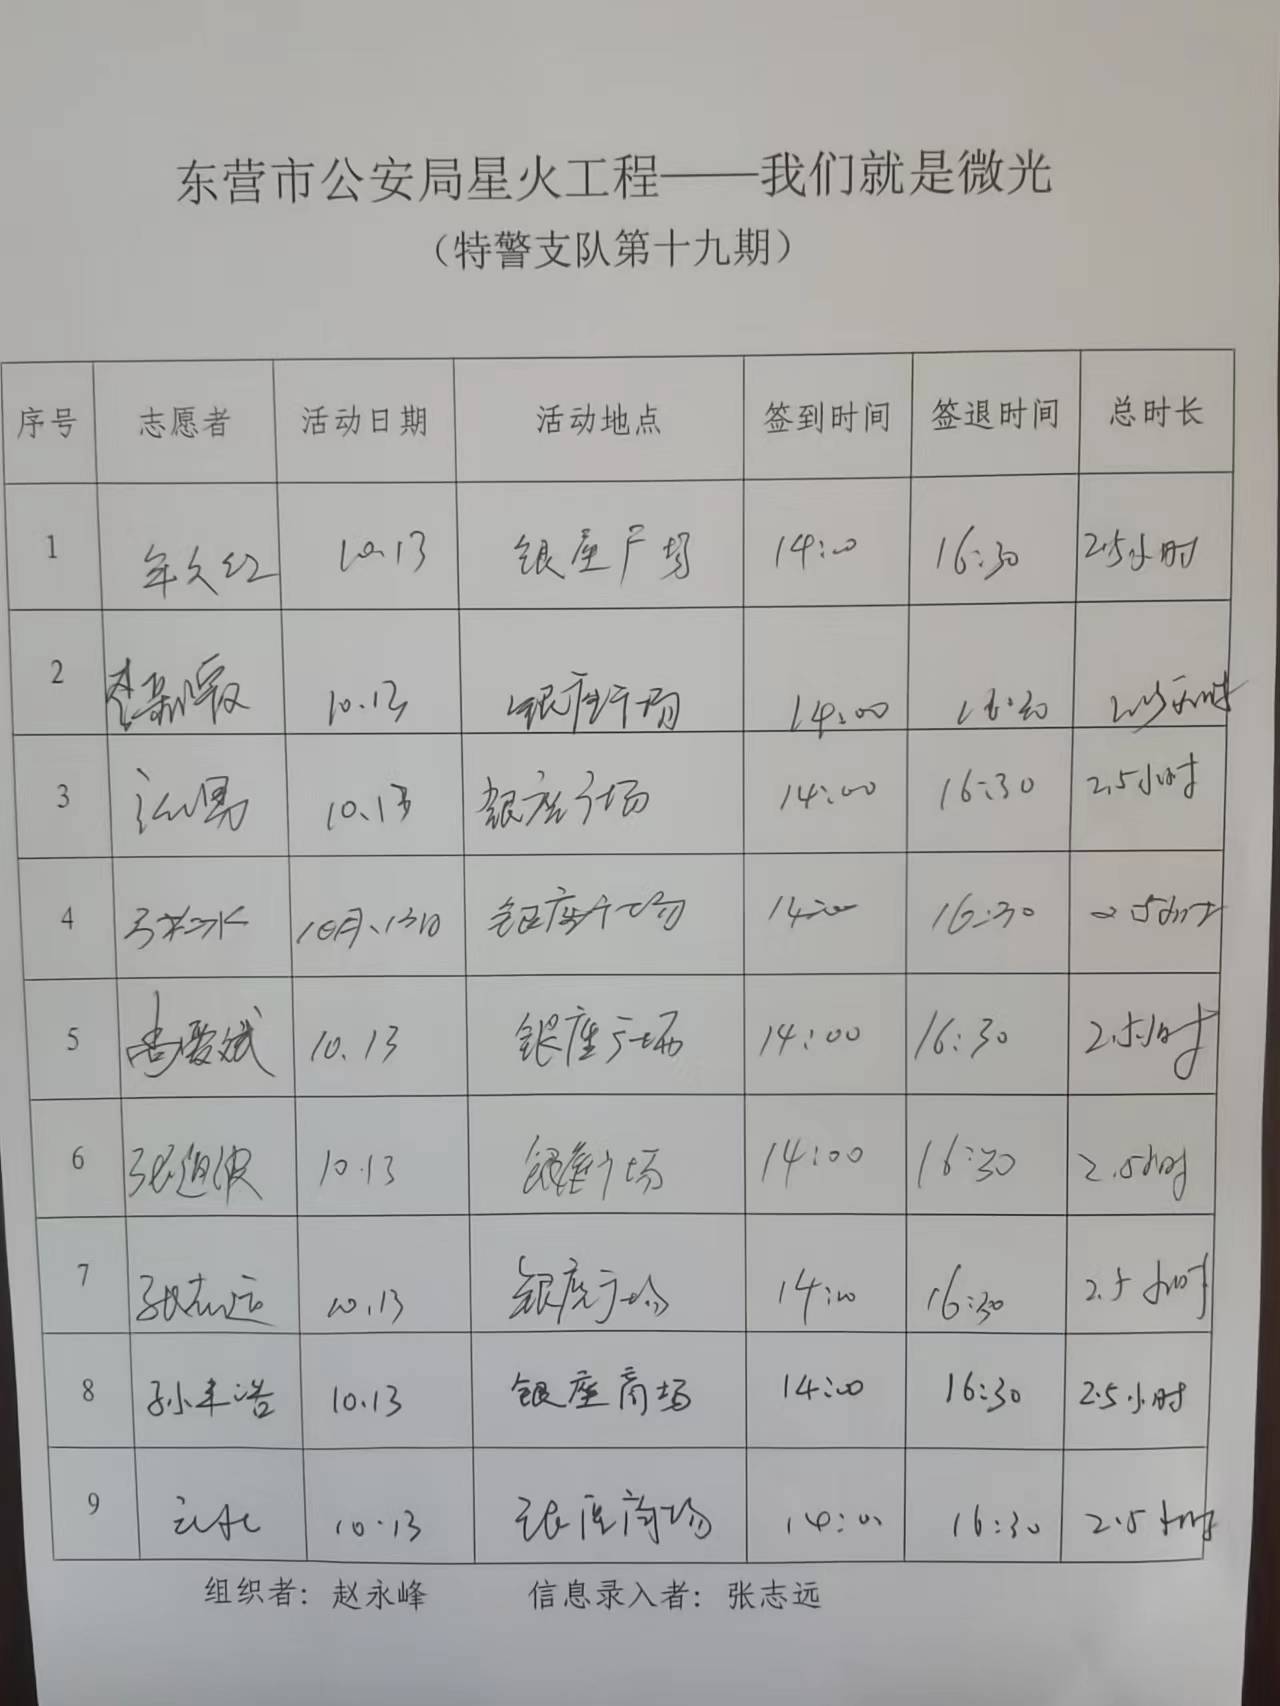 东营市公安局星火工程——我们就是微光
（特警支队第十九期）
序号 志愿者 活动日期 活动地点 签到时间 签退时间 总时长
1 10.13 银座广场 14:00 16:30 2.5小时
2 10.13 银座广场 14:00 16:30
3 10.13 银座广场 14:00 16:30 2.5小时
4 10月、13日 银座广场 14:00 16:30 2.5小时
5 10.13 银座广场 14:00 16:30 2.5小时
6 10.13 银座广场 14:00 16:30 2.5小时
7 张志远 10.13 银座广场 14:00 16:30 2.5小时
8 孙丰浩 10.13 银座商场 14:00 16:30 2.5小时
9 10.13 银座商场 14:00 16:30 2.5小时
组织者：赵永峰 信息录入者：张志远